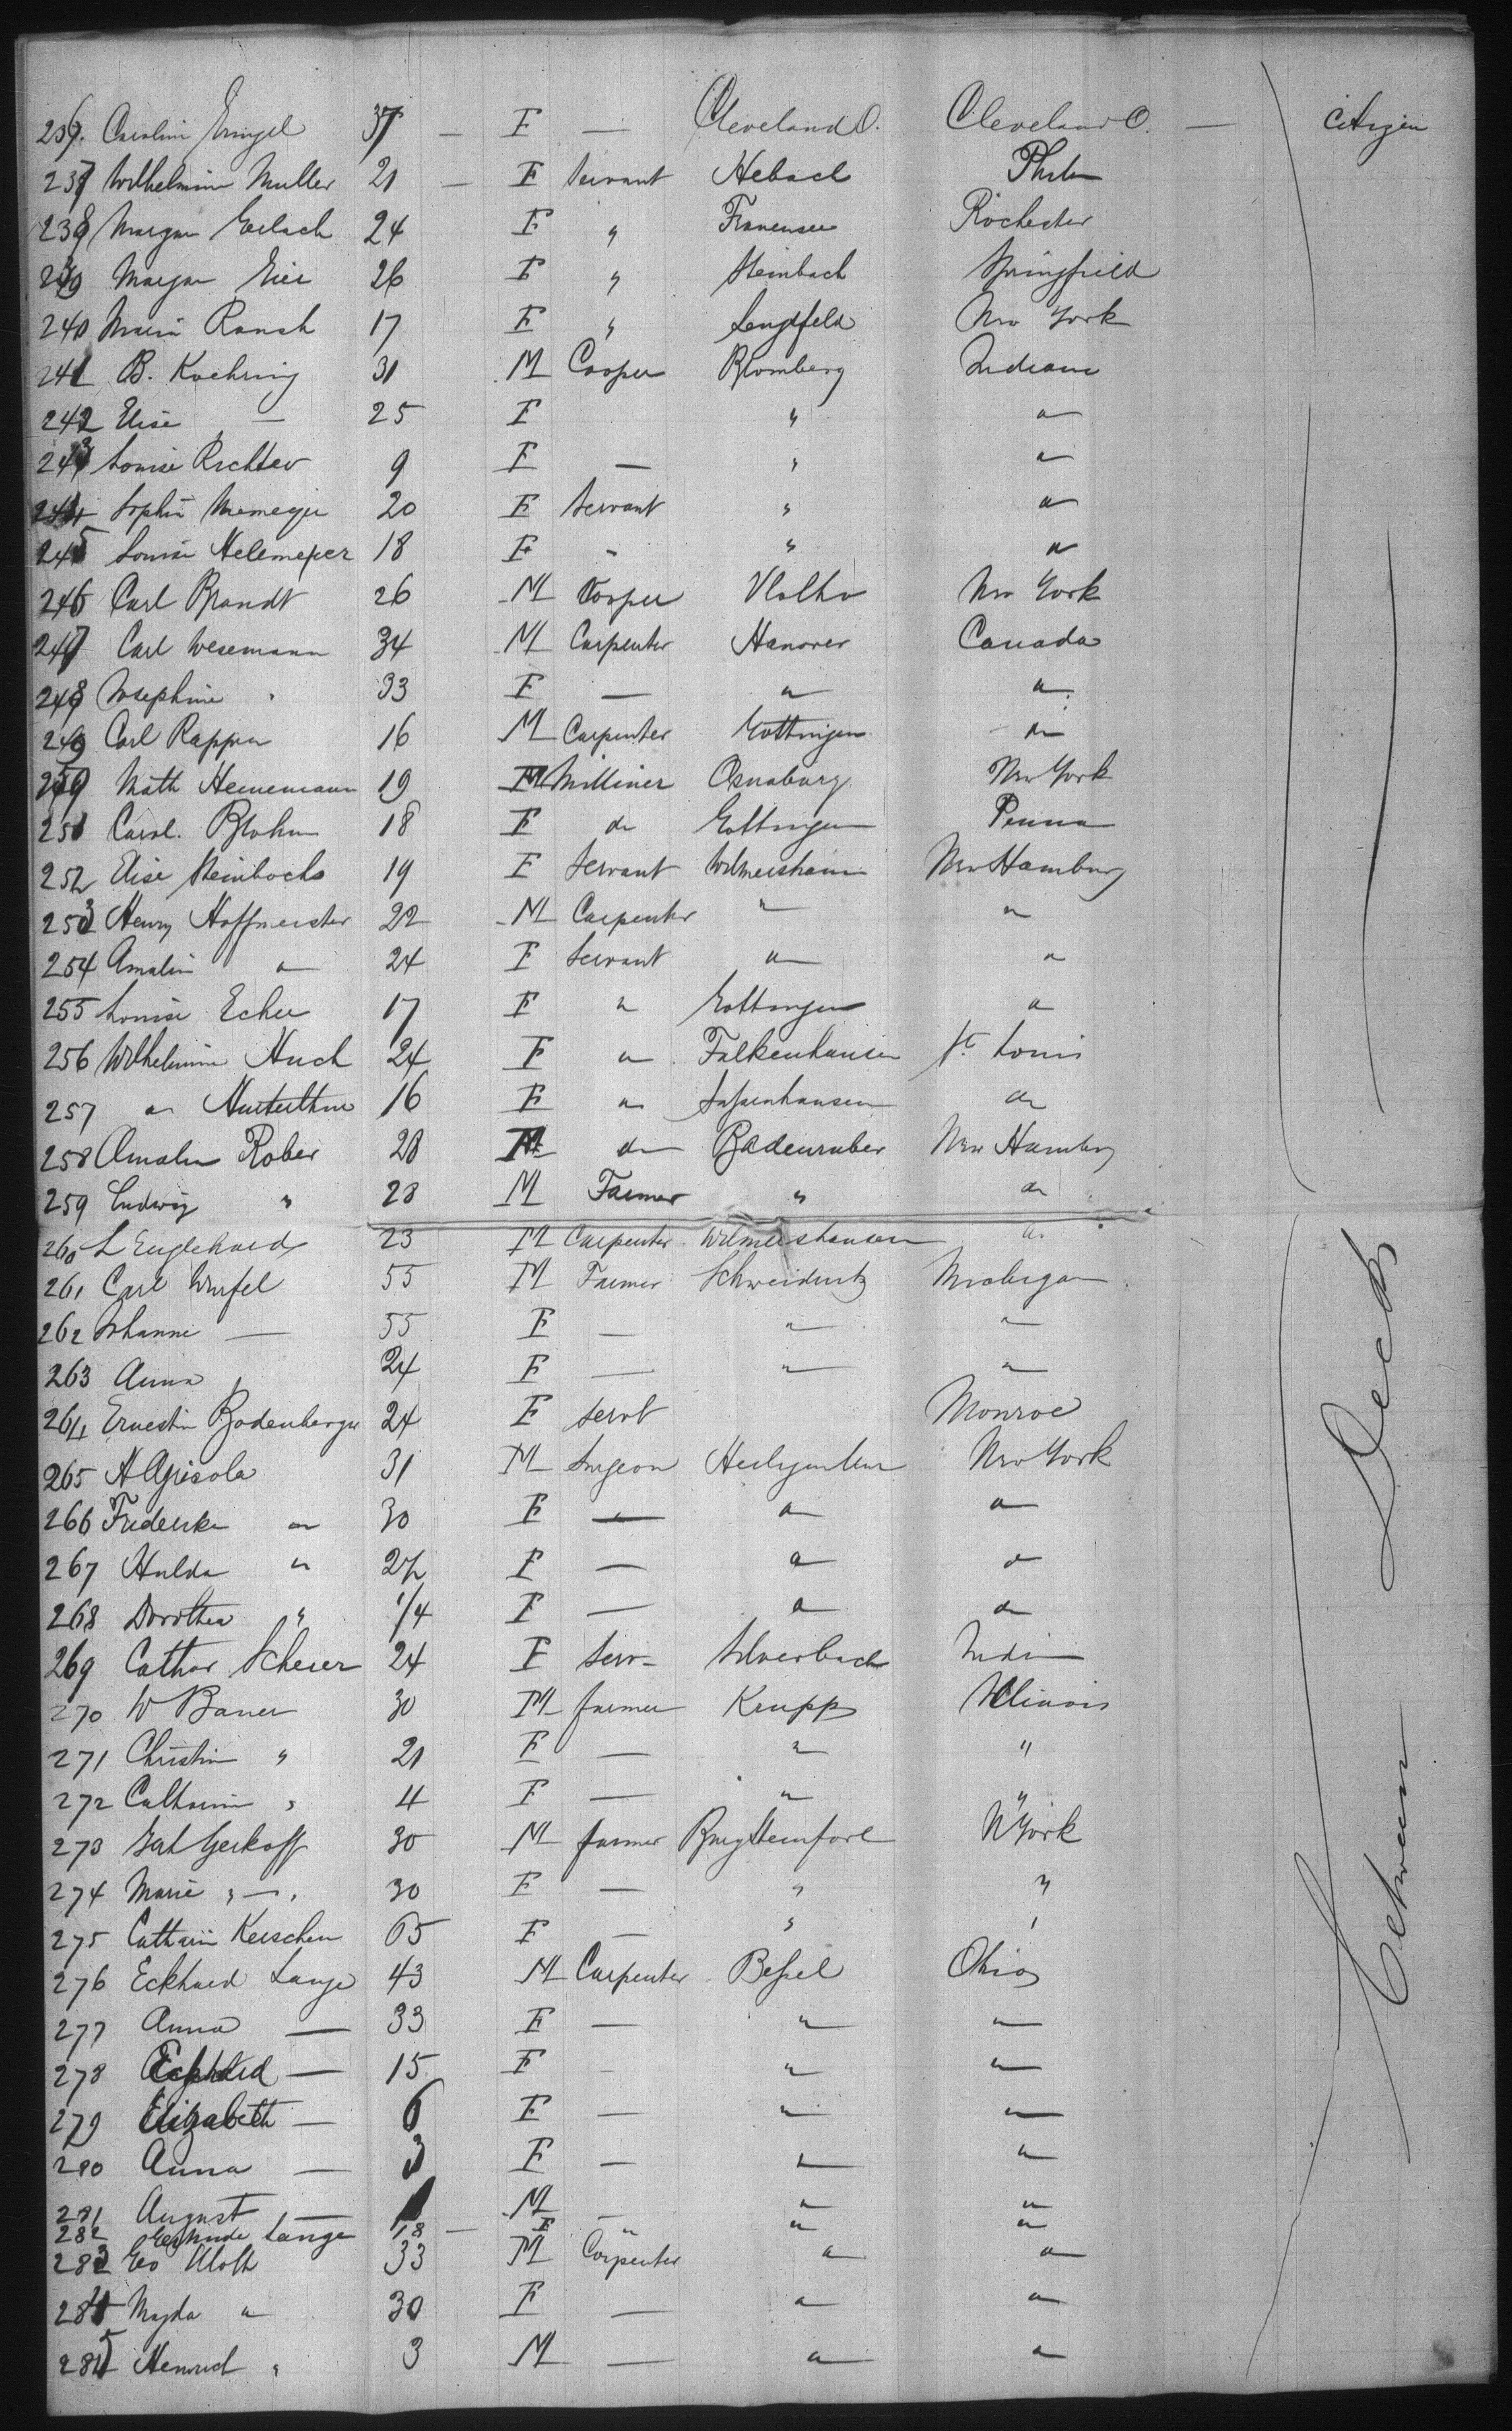 236. Caroline Kringel 37 — F — Cleveland O. Cleveland O. — Citizen
237 Wilhelmine Muller 21 — F Servant Hebach Phila
238 Margar Gerlach 24 F " Frauensee Rochester
239 Margar Eier 26 F " Steinbach Springfield
240 Marie Ransch 17 F " Lengsfeld New York
241 B. Koehring 31 M Cooper Blomberg Indiana
242 Elise — 25 F " "
243 Louise Richter 9 F — " "
244 Sophie 20 F Servant " "
245 Louise Helemeyer 18 F " " "
246 Carl Brandt 26 M Cooper Vlotho New York
247 Carl Wesemann 34 M Carpenter Hanover Canada
248 Josephine " 33 F — " "
249 Carl Rappen 16 M Carpenter Gottingen do
250 Math Heinemann 19 F Milliner Osnaburg New York
251 Carol. Blohm 18 F do Gottingen Penna
252 Elise Steinbock 19 F Servant Wilmershausen New Hamburg
253 Henry Hoffmeister 22 M Carpenter " "
254 Amalie " 24 F Servant " "
255 Louise Echer 17 F " Gottingen "
256 Wilhelmine Huch 24 F " Falkenhausen St. Louis
257 " 16 F " do
258 Amalie Rober 28 F do Bodenruber New Hamburg
259 Ludwig " 28 M Farmer " do
260 L Englehard 23 M Carpenter Wilmershausen do
261 Carl Wurfel 55 M Farmer Schweidnitz Michigan
262 Johanne — 55 F — " "
263 Anna " 24 F — " "
264 Ernestin Bodenberger 24 F Servt Monroe
265 A Agricola 31 M Surgeon New York
266 Frederike " 30 F — " "
267 Hulda " F — " "
268 Dorothea " 1/4 F — " do
269 Cathar Scherer 24 F Serv- Silverbach India
270 W Bauer 30 M farmer Krupp Illinois
271 Christin " 21 F — " "
272 Catharine " 4 F — " "
273 Gerkoff 30 M farmer Burgsteinfort N York
274 Marie " — " 30 F — " "
275 Catharin Kerschen 65 F — " "
276 Eckhard Lange 43 M Carpenter Beßel Ohio
277 Anna — 33 F — " "
278 Eckhard — 15 F — " "
279 Elizabeth — 6 F — " "
280 Anna — 3 F — " "
281 August — M — " "
282 Gertrude Lange 18 — F " " "
283 Geo Kloth 33 M Carpenter " "
284 Magda " 30 F — " "
285 Heinrich " 3 M — " "
Between Deck